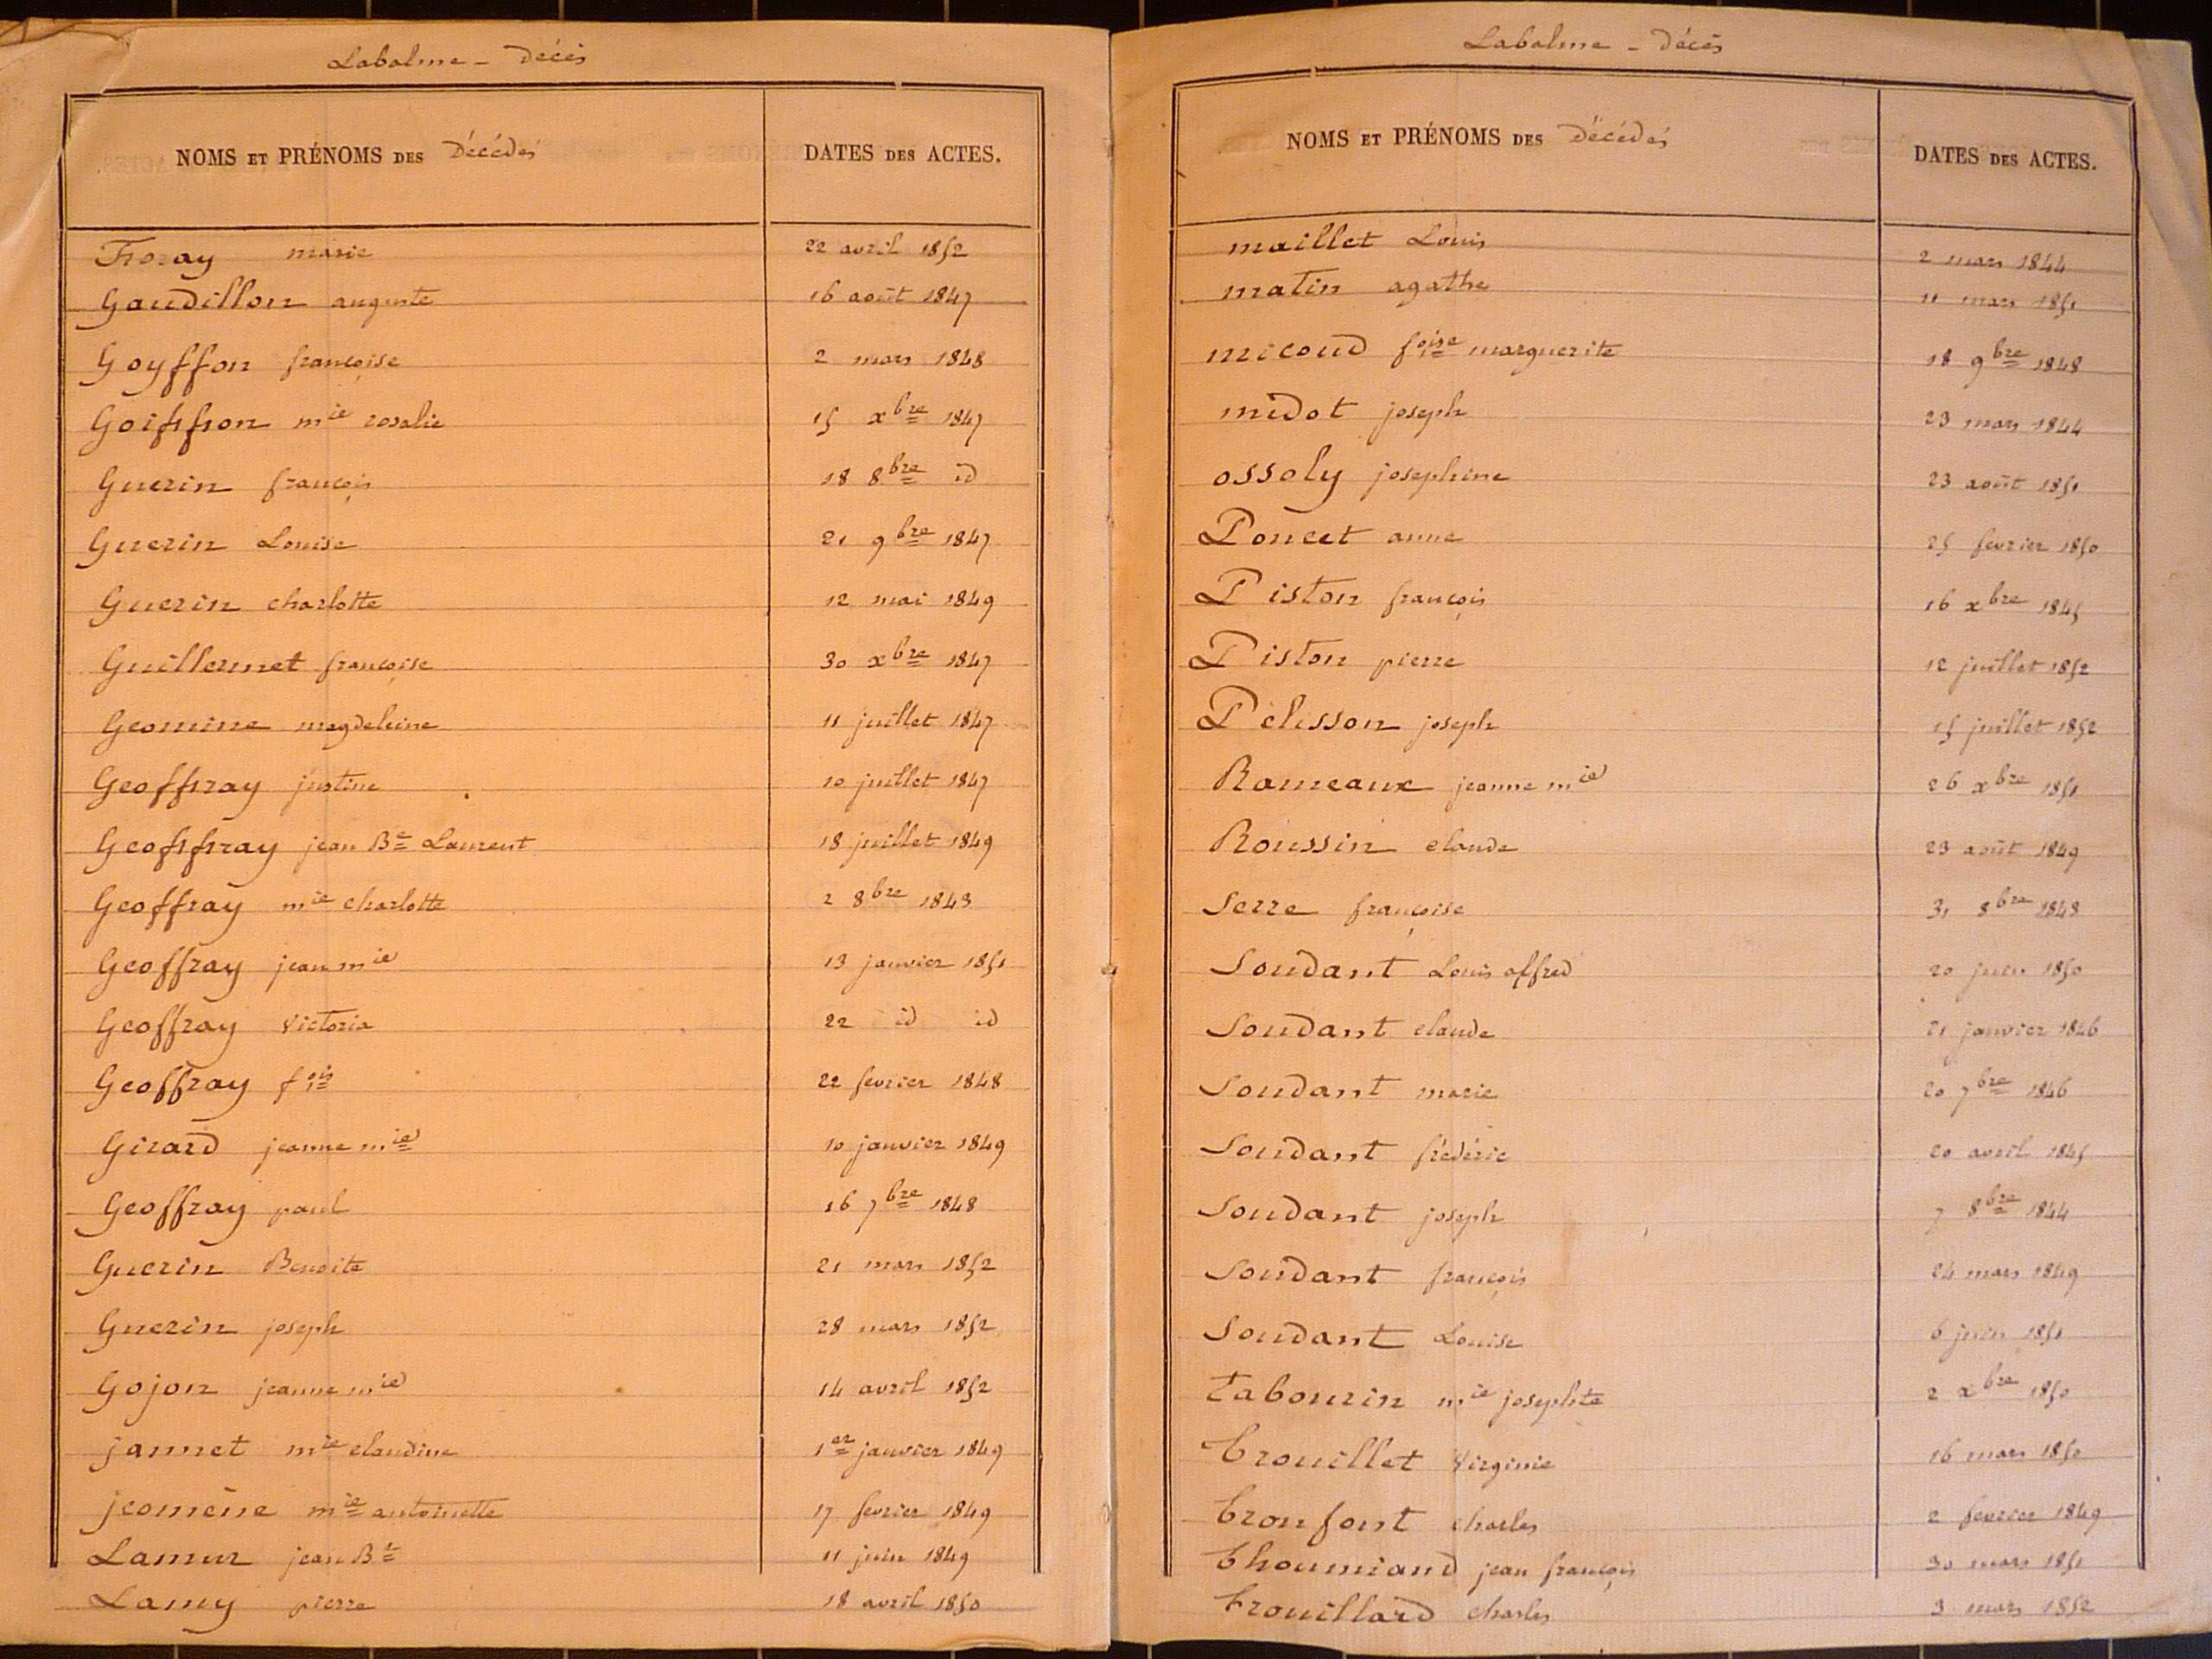 Labalme - Décès
NOMS ET PRÉNOMS DES Décédés DATES DES ACTES.
Froray marie 22 avril 1852
Gaudillon auguste 16 août 1847
Goyffon françoise 2 mars 1848
Goiffon mie rosalie 15 xbre 1847
Guerin françois 18 8bre id
Guerin Louise 21 9bre 1847
Guerin charlotte 12 mai 1849
Guillermet françoise 30 xbre 1847
Geomine magdeleine 11 juillet 1847
Geoffray justine 10 juillet 1847
Geoffray jean Bte Laurent 18 juillet 1849
Geoffray mie charlotte 2 8bre 1843
Geoffray jean mie 13 janvier 1851
Geoffray Victoria 22 id id
Geoffray fois 22 fevrier 1848
Girard jeanne mie 10 janvier 1849
Geoffray paul 16 7bre 1848
Guerin Benoite 21 mars 1852
Guerin joseph 28 mars 1852
Gojon jeanne mie 14 avril 1852
jannet mie claudine 1er janvier 1849
jeomène mie antoinette 17 fevrier 1849
Lamur jean Bte 11 juin 1849
Lamy pierre 18 avril 1850
Labalme - Décès
NOMS ET PRÉNOMS DES Décédés DATES DES ACTES.
maillet Louis 2 mars 1844
matin agathe 11 mars 1851
micoud foise marguerite 18 9bre 1848
midot joseph 23 mars 1844
ossoly josephine 23 août 1851
Poncet anne 25 fevrier 1850
Piston françois 16 xbre 1845
Piston pierre 12 juillet 1852
Pélisson joseph 15 juillet 1852
Rameaux jeanne mie 26 xbre 1851
Roussin claude 23 août 1849
Serre françoise 31 8bre 1843
Soudant Louis alfred 20 juin 1850
Soudant claude 21 janvier 1846
Soudant marie 20 7bre 1846
Soudant frédéric 20 avril 1845
Soudant joseph 7 8bre 1844
Soudant françois 24 mars 1849
Soudant Louise 6 juin 1851
Tabourin mie josephte 2 xbre 1850
Trouillet Virginie 16 mars 1850
Tronfont charles 2 fevrier 1849
Thoumiand jean françois 30 mars 1851
Trouillard charles 3 mars 1852